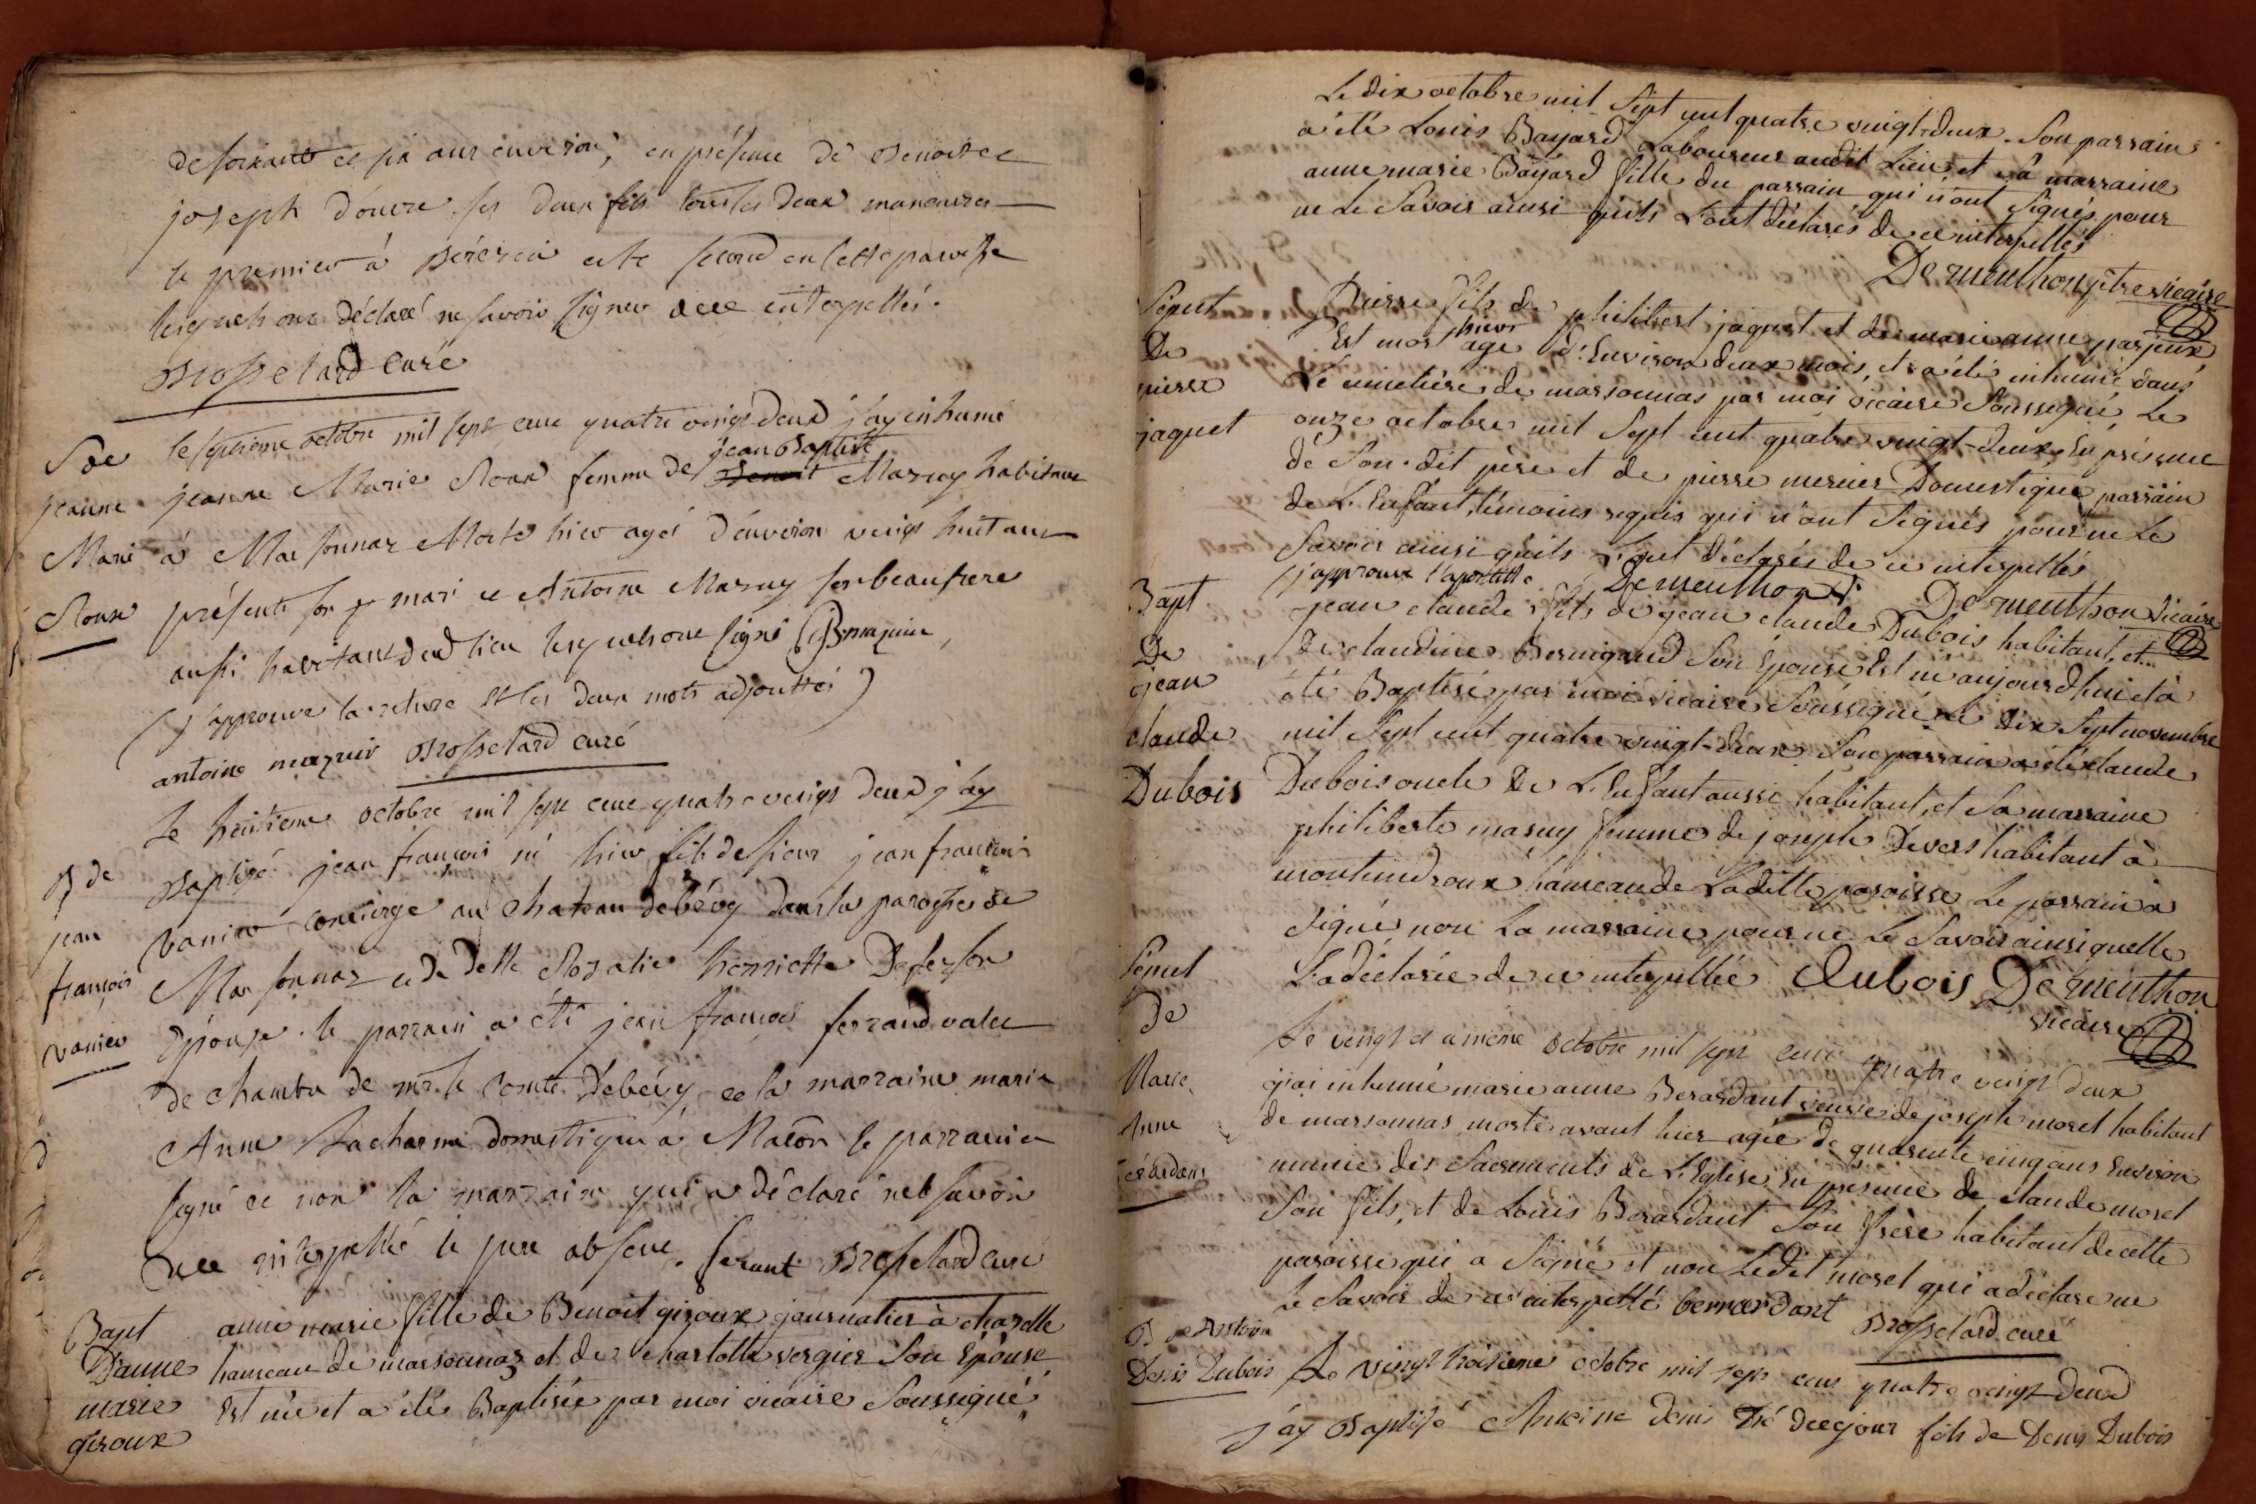 de soixante et six ans environ, en présence de Benoit et
joseph Douvre ses deux fils tous les deux manoeuvres
le premier à et le second en cette paroisse
lesquels ont déclaré ne savoir signer de ce interpellés.
Brosselard curé
Sre
jeanne
Marie
Roux
le septieme octobre mil sept cent quatre vingt deux j'ay inhumé
jeanne Marie Roux femme de jean Baptiste Mazuy habitant
à Marsonnaz Morte hier agée d'environ vingt huit ans
présents son mari et Antoine Mazuy son beaufrere
aussi habitant dud lieu lesquels ont signé
(j'approuve la rature et les deux mots adjouttés)
antoine mazuir Brosselard curé
B de
jean
françois
vanier
Le huitieme octobre mil sept cent quatre vingt deux j'ay
Baptisé jean françois né hier fils de sieur jean francois
vanier concierge au chateau de bévy dans la paroisse de
Marsonnaz et de delle Rosalie henriette
Epouse. le parrain a été jean francois ferrand valet
de chambre de mr. le comte debévy et la marraine marie
Anne domestique à Macôn le parrain a
signé et non la marraine qui a déclaré ne le savoir
de ce interpellé le pere absent. ferant Brosselard curé
Bapt
D'anne
marie
giroux
anne marie fille de Benoit giroux journalier à chazelle
hameau de marsonnaz et de charlotte vergier Son Epouse
Est née et a été Baptisée par moi vicaire Soussigné
Le dix octobre mil Sept cent quatre vingt-deux. Son parrain
a été Louis Bayard Laboureur audit Lieu et sa marraine
anne marie Bayard fille du parrain qui n'ont Signés pour
ne Le Savoir ainsi qu'ils L'ont déclarés de ce interpellés
De menthon ptre vicaire
Sépult
De
pierre
jaquet
Pierre fils de philibert jaquet et de marie anne parjeux
Est mort hier agé d'Environ deux mois, et a été inhumé dans
Le cimetière de marsonnas par moi vicaire Soussigné, Le
onze octobre mil Sept cent quatre vingt-deux, En présence
de Son-dit père et de pierre mercier Domestique parrain
de L'Enfant, témoins requis qui n'ont Signés pour ne Le
Savoir ainsi qu'ils L'ont déclarés de ce interpellés
j'approuve l'apostille De menthon De menthon vicaire
Bapt
De
jean
claude
Dubois
jean claude fils de jean claude Dubois habitant, et
de claudine Bernigaud Son Epouse Est né aujourd'hui et a
été Baptisé par moi vicaire Soussigné Le dix Sept novembre
mil Sept cent quatre vingt-deux. Son parrain a été claude
Dubois oncle de L'Enfant aussi habitant, et Sa marraine
philiberte mazuy femme de joseph Devers habitant à
hameau de Laditte paroisse Le parrain a
Signé non La marraine pour ne Le Savoir ainsi quelle
L'a déclarée de ce interpellée Dubois De menthon
vicaire
Sépul
de
Marie
Anne
Le vingt et unieme octobre mil sept cent quatre vingt deux
j'ai inhumé marie anne Berardant veuve de joseph morel habitant
de marsonnas morte avant hier agée de quarente cinq ans Environ
munie des Sacrements de L'Eglise En présence de claude morel
Son fils, et de Louis Berardant Son frère habitant de cette
paroisse qui a Signé et non Ledit morel qui a déclaré ne
le Savoir de ce interpellé berrardant Brosselard curé
B. de Antoine
Denis Dubois
Le vingt troisieme octobre mil sept cent quatre vingt deux
j'ay Baptisé Antoine denis Né de ce jour fils de Denis Dubois